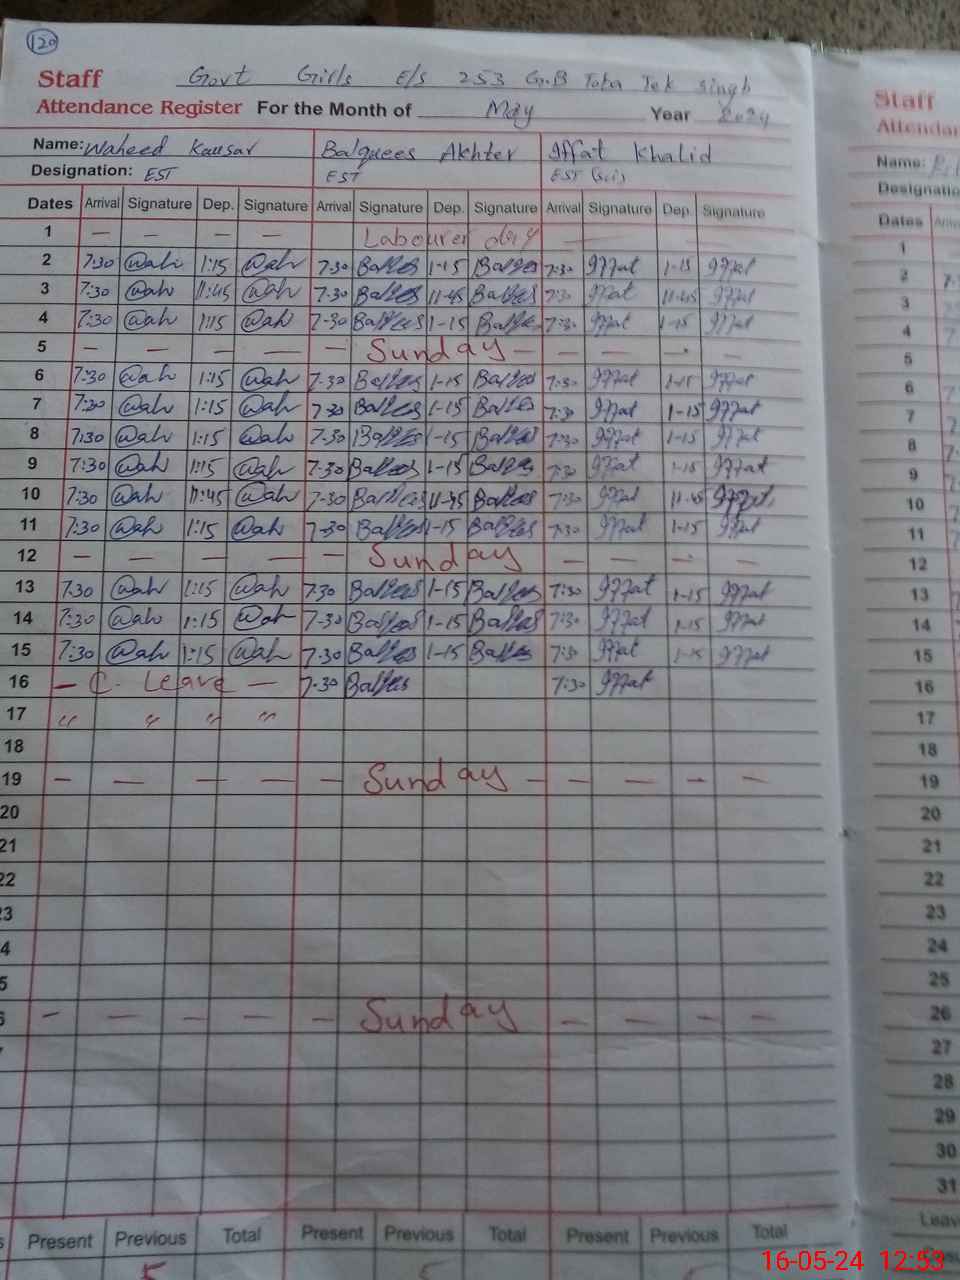 120
Staff Govt Girls E/S 253 G.B Toba Tek Singh
Attendance Register For the Month of May Year 2024
Name: Waheed Kausar Balquees Akhter Iffat Khalid
Designation: EST EST EST (Sci)
Dates Arrival Signature Dep. Signature Arrival Signature Dep. Signature Arrival Signature Dep. Signature
1 — — — — Labourer day — —
2 7:30 1:15 7-30 1-15 7:30 Iffat 1-15 Iffat
3 7:30 11:45 7-30 11-45 7:30 Iffat 11-45 Iffat
4 7:30 1:15 7-30 1-15 7:30 Iffat 1-15 Iffat
5 — — — — — Sunday — — — — —
6 7:30 1:15 7-30 1-15 7:30 Iffat 1-15 Iffat
7 7:30 1:15 7-30 1-15 7:30 Iffat 1-15 Iffat
8 7:30 1:15 7-30 1-15 7:30 Iffat 1-15 Iffat
9 7:30 1:15 7-30 1-15 7:30 Iffat 1-15 Iffat
10 7:30 11:45 7-30 11-45 7:30 Iffat 11-45 Iffat
11 7:30 1:15 7-30 1-15 7:30 Iffat 1-15 Iffat
12 — — — — — Sunday — — — —
13 7:30 1:15 7-30 1-15 7:30 Iffat 1-15 Iffat
14 7:30 1:15 7-30 1-15 7:30 Iffat 1-15 Iffat
15 7:30 1:15 7-30 1-15 7:30 Iffat 1-15 Iffat
16 — C. Leave — 7-30 7:30 Iffat
17 " " " "
18
19 — — — — — Sunday — — — — —
20
21
22
23
4
5
6 — — — — — Sunday — — — —
Present Previous Total Present Previous Total Present Previous Total
5 5
Staff
Attendan
Name:
Designatio
Dates
1
2
3
4
5
6
7
8
9
10
11
12
13
14
15
16
17
18
19
20
21
22
23
24
25
26
27
28
29
30
31
Leav
16-05-24 12:53